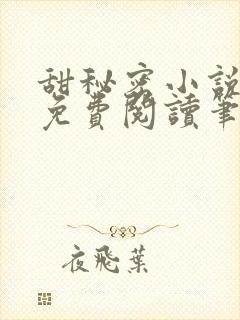 甜秘密小說
免費閱讀筆
夜飛葉